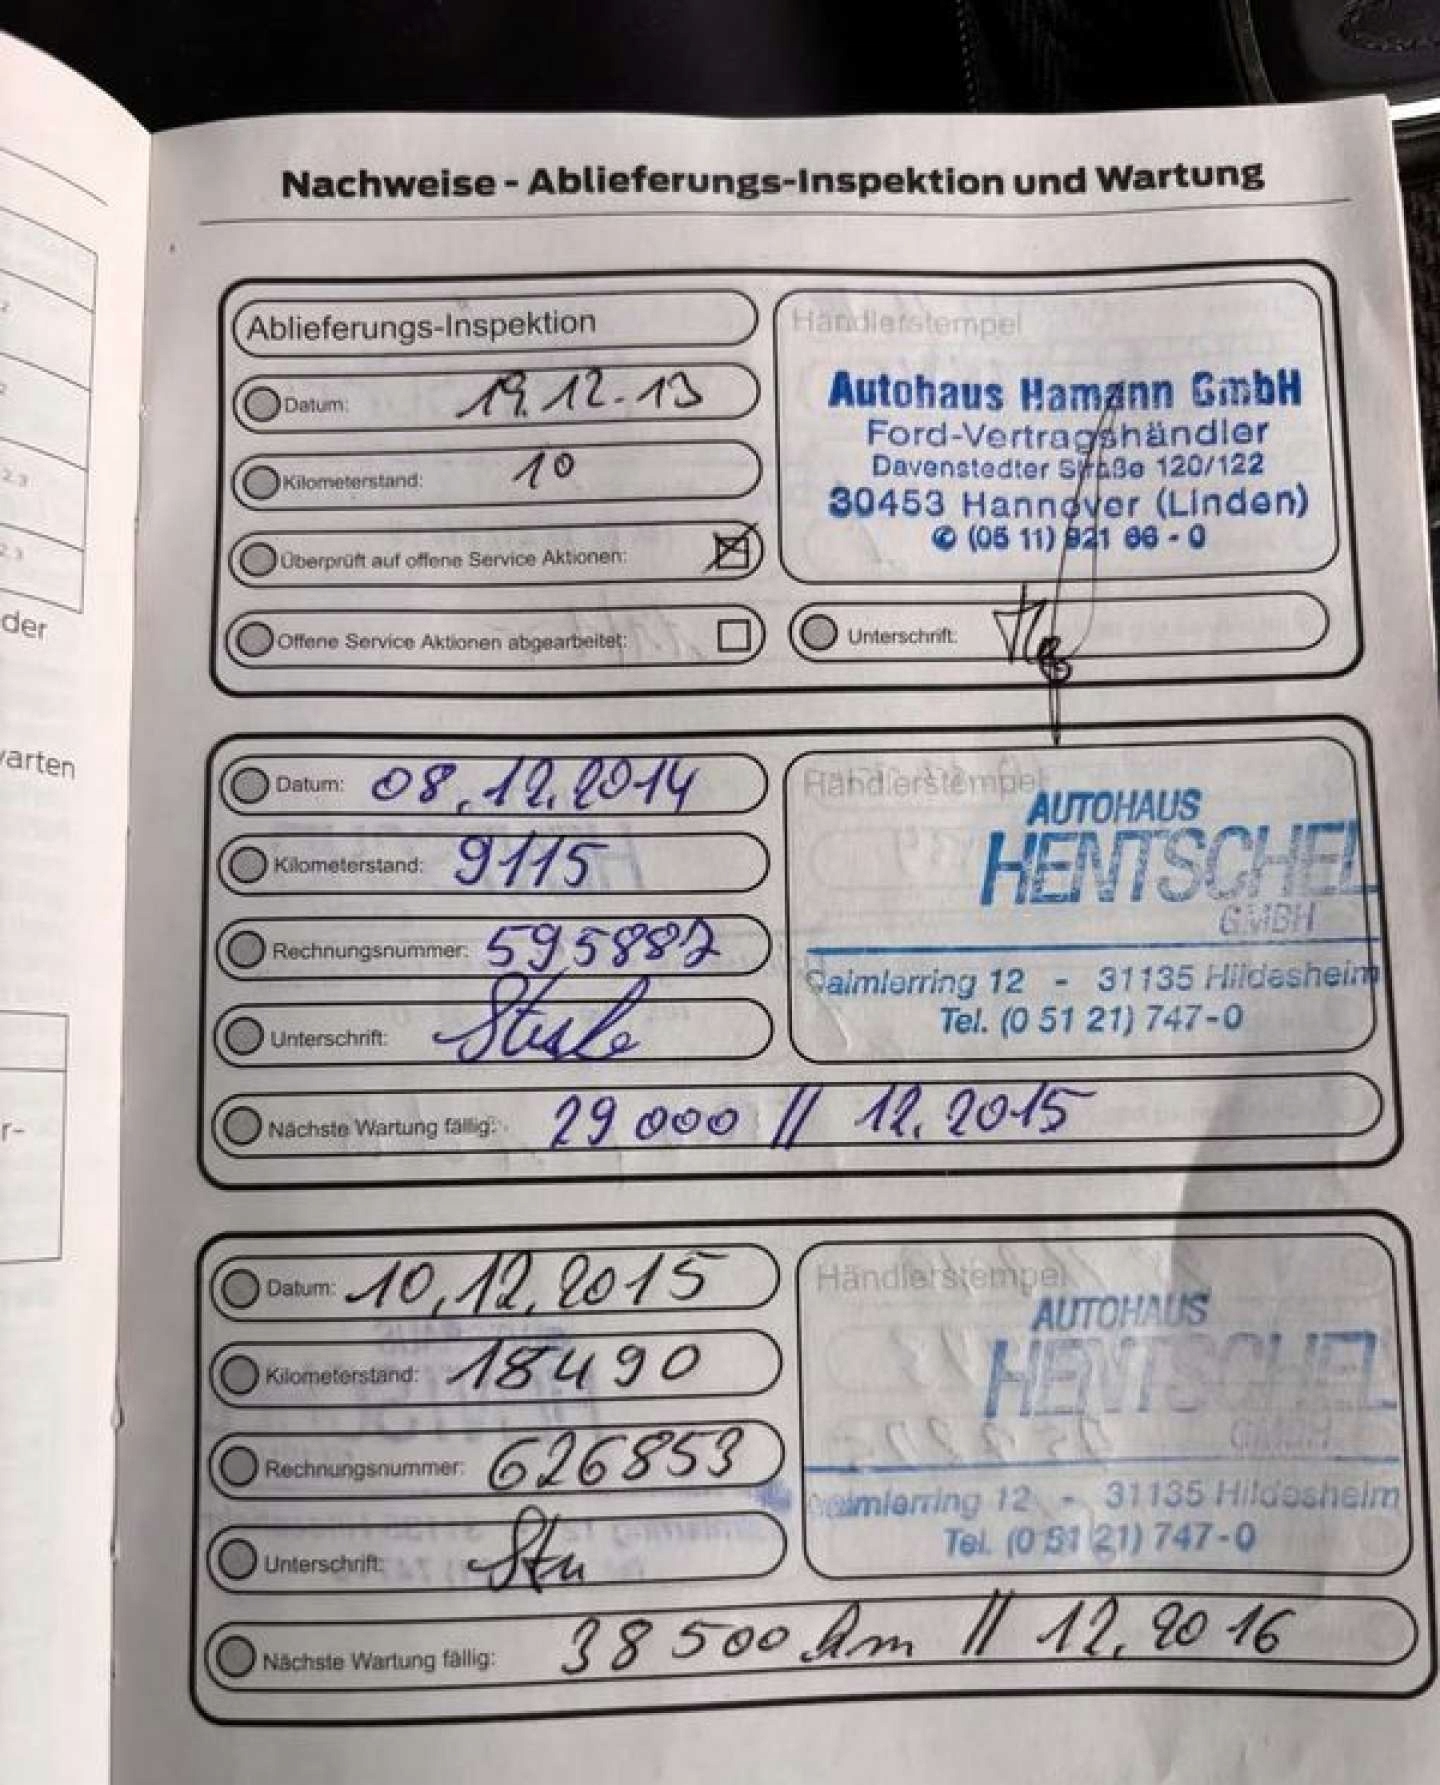 Nachweise - Ablieferungs-Inspektion und Wartung
Ablieferungs-Inspektion
Datum: 19.12.13
Kilometerstand: 10
Überprüft auf offene Service Aktionen:
Offene Service Aktionen abgearbeitet:
Händlerstempel
Autohaus Hamann GmbH
Ford-Vertragshändler
Davenstedter Straße 120/122
30453 Hannover (Linden)
(05 11) 921 66 - 0
Unterschrift:
Datum: 08.12.2014
Kilometerstand: 9115
Rechnungsnummer: 595887
Unterschrift:
Händlerstempel
AUTOHAUS
HENTSCHEL
GMBH
Daimlerring 12 - 31135 Hildesheim
Tel. (0 51 21) 747-0
Nächste Wartung fällig: 29 000 // 12.2015
Datum: 10.12.2015
Kilometerstand: 18490
Rechnungsnummer: 626853
Unterschrift:
Händlerstempel
AUTOHAUS
HENTSCHEL
GMBH
Daimlerring 12 - 31135 Hildesheim
Tel. (0 51 21) 747-0
Nächste Wartung fällig: 38 500 km // 12.2016
der
warten
r-